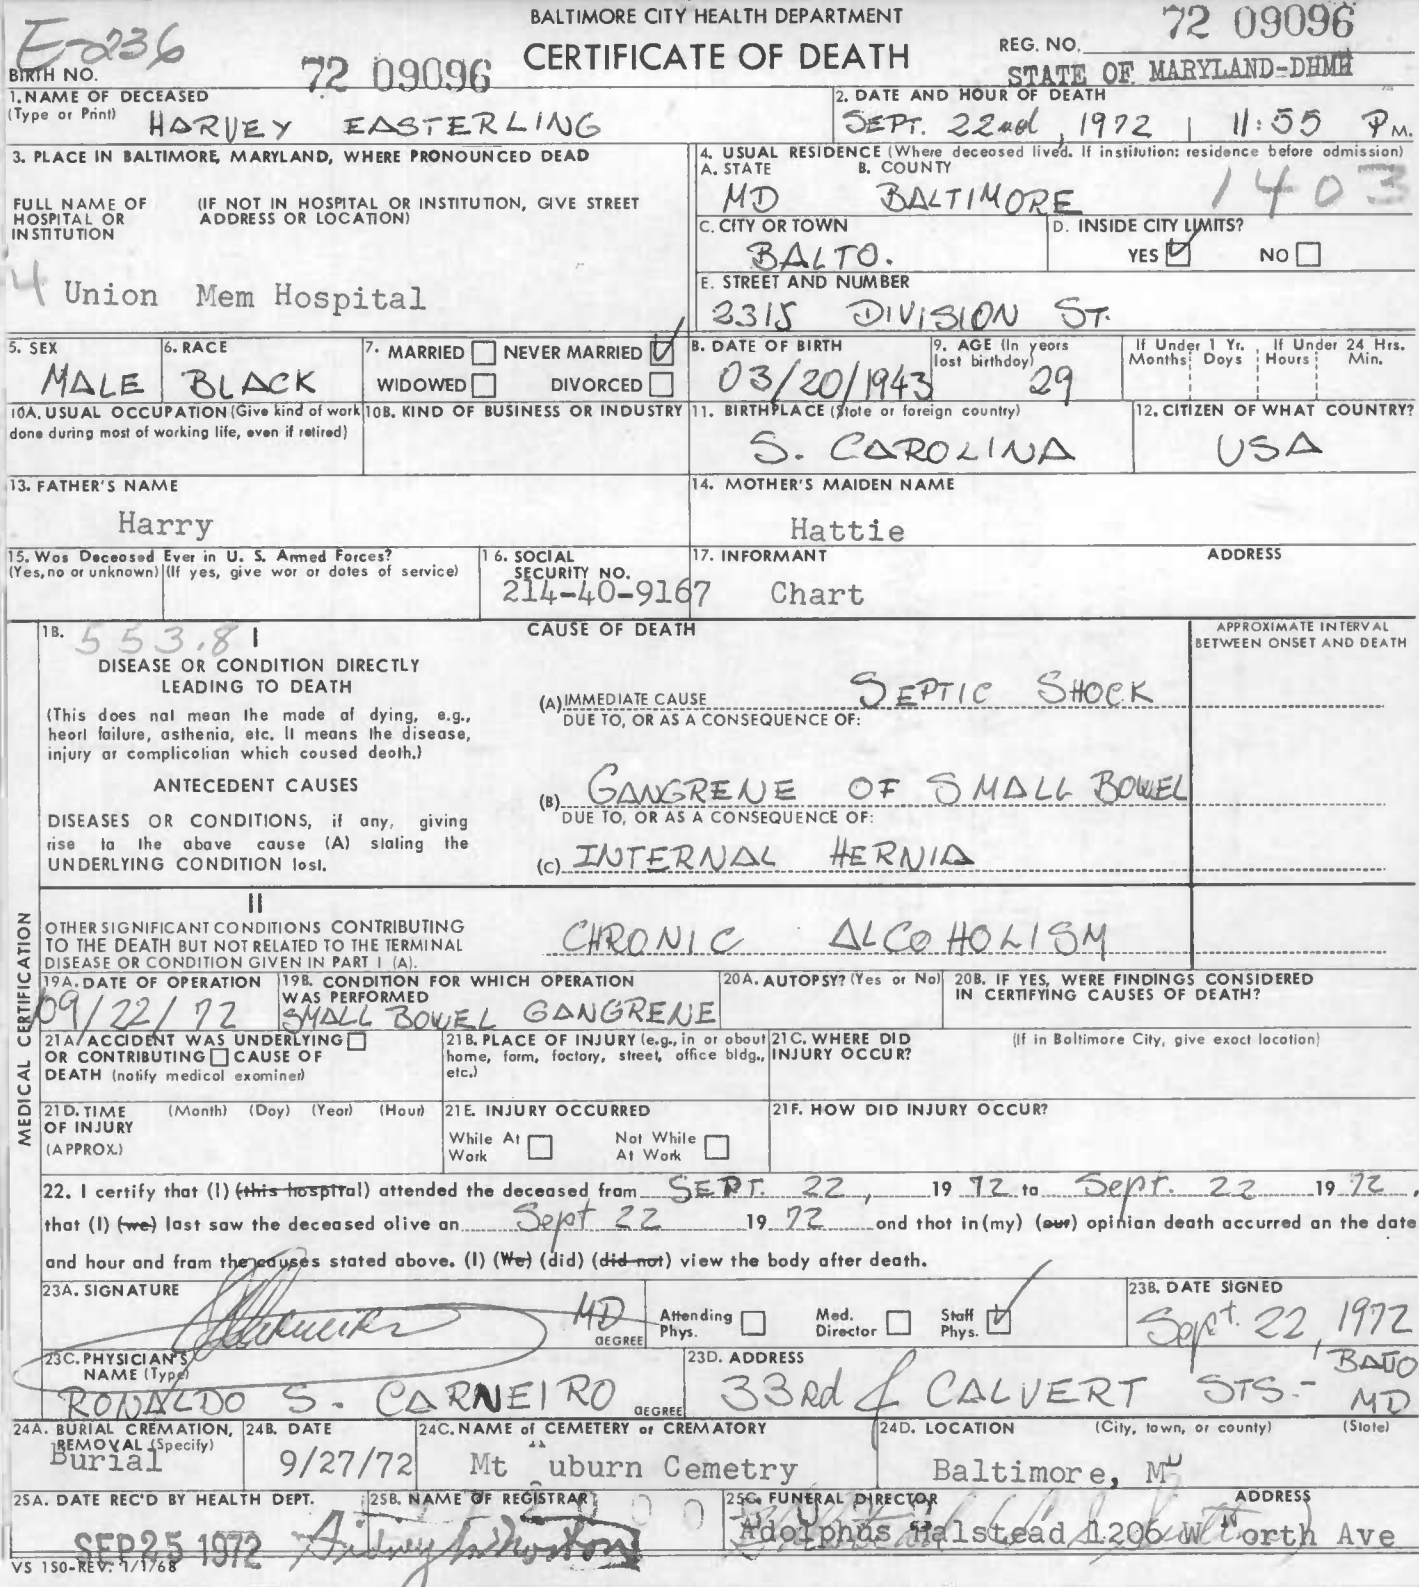 E-236
BIRTH NO.
72 09096
BALTIMORE CITY HEALTH DEPARTMENT
CERTIFICATE OF DEATH
72 09096
REG. NO.
STATE OF MARYLAND-DHMH
1. NAME OF DECEASED
(Type or Print) HARVEY EASTERLING
2. DATE AND HOUR OF DEATH
SEPT. 22nd, 1972 11:55 P M.
3. PLACE IN BALTIMORE, MARYLAND, WHERE PRONOUNCED DEAD
FULL NAME OF HOSPITAL OR INSTITUTION
(IF NOT IN HOSPITAL OR INSTITUTION, GIVE STREET ADDRESS OR LOCATION)
4 Union Mem Hospital
4. USUAL RESIDENCE (Where deceased lived. If institution: residence before admission)
A. STATE B. COUNTY
MD BALTIMORE 1403
C. CITY OR TOWN
BALTO.
D. INSIDE CITY LIMITS?
YES NO
E. STREET AND NUMBER
2315 DIVISION ST.
5. SEX
MALE
6. RACE
BLACK
7. MARRIED NEVER MARRIED
WIDOWED DIVORCED
8. DATE OF BIRTH
03/20/1943
9. AGE (In years last birthday)
29
If Under 1 Yr. If Under 24 Hrs.
Months Days Hours Min.
10A. USUAL OCCUPATION (Give kind of work done during most of working life, even if retired)
10B. KIND OF BUSINESS OR INDUSTRY
11. BIRTHPLACE (State or foreign country)
S. CAROLINA
12. CITIZEN OF WHAT COUNTRY?
USA
13. FATHER'S NAME
Harry
14. MOTHER'S MAIDEN NAME
Hattie
15. Was Deceased Ever in U. S. Armed Forces?
(Yes, no or unknown) (If yes, give war or dates of service)
16. SOCIAL SECURITY NO.
214-40-9167
17. INFORMANT ADDRESS
Chart
MEDICAL CERTIFICATION
18. 553.8 I
CAUSE OF DEATH
APPROXIMATE INTERVAL BETWEEN ONSET AND DEATH
DISEASE OR CONDITION DIRECTLY
LEADING TO DEATH
(This does not mean the mode of dying, e.g.,
heart failure, asthenia, etc. It means the disease,
injury or complication which caused death.)
(A) IMMEDIATE CAUSE SEPTIC SHOCK
DUE TO, OR AS A CONSEQUENCE OF:
ANTECEDENT CAUSES
DISEASES OR CONDITIONS, if any, giving
rise to the above cause (A) stating the
UNDERLYING CONDITION last.
(B) GANGRENE OF SMALL BOWEL
DUE TO, OR AS A CONSEQUENCE OF:
(C) INTERNAL HERNIA
II
OTHER SIGNIFICANT CONDITIONS CONTRIBUTING
TO THE DEATH BUT NOT RELATED TO THE TERMINAL
DISEASE OR CONDITION GIVEN IN PART I (A).
CHRONIC ALCOHOLISM
19A. DATE OF OPERATION
09/22/72
19B. CONDITION FOR WHICH OPERATION WAS PERFORMED
SMALL BOWEL GANGRENE
20A. AUTOPSY? (Yes or No)
20B. IF YES, WERE FINDINGS CONSIDERED IN CERTIFYING CAUSES OF DEATH?
21A. ACCIDENT WAS UNDERLYING
OR CONTRIBUTING CAUSE OF
DEATH (notify medical examiner)
21B. PLACE OF INJURY (e.g., in or about home, farm, factory, street, office bldg., etc.)
21C. WHERE DID INJURY OCCUR? (If in Baltimore City, give exact location)
21D. TIME OF INJURY (APPROX.) (Month) (Day) (Year) (Hour)
21E. INJURY OCCURRED
While At Work Not While At Work
21F. HOW DID INJURY OCCUR?
22. I certify that (I) (this hospital) attended the deceased from SEPT. 22, 1972 to Sept. 22 1972,
that (I) (we) last saw the deceased alive on Sept 22 1972 and that in (my) (our) opinion death occurred on the date
and hour and from the causes stated above. (I) (We) (did) (did not) view the body after death.
23A. SIGNATURE
MD
DEGREE
Attending Phys. Med. Director Staff Phys.
23B. DATE SIGNED
Sept. 22, 1972
23C. PHYSICIAN'S NAME (Type)
RONALDO S. CARNEIRO DEGREE
23D. ADDRESS
33rd & CALVERT STS.- BALTO MD
24A. BURIAL CREMATION, REMOVAL (Specify)
Burial
24B. DATE
9/27/72
24C. NAME of CEMETERY or CREMATORY
Mt uburn Cemetry
24D. LOCATION (City, town, or county) (State)
Baltimore, M
25A. DATE REC'D BY HEALTH DEPT.
SEP 25 1972
25B. NAME OF REGISTRAR
25C. FUNERAL DIRECTOR ADDRESS
Adolphus Halstead 1206 W orth Ave
VS 150-REV. 1/1/68